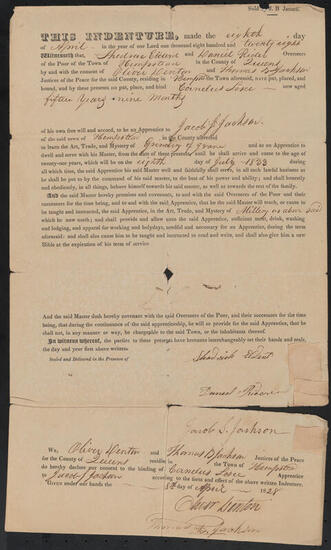 Sold B. Jansen.
THIS INDENTURE, made the eighth day
of April in the year of our Lord one thousand eight hundred and twenty eight
Witnesseth that and Daniel Overseers
of the Poor of the Town of Hempstead in the County of Queens
by and with the consent of Oliver Denton and Thomas B Jackson
Justices of the Peace for the said County, residing in Hempstead Town aforesaid, have put, placed, and
bound, and by these present do put, place, and bind Cornelius now aged
fifteen Years nine Months
of his own free will and accord, to be an Apprentice to Jacob S. Jackson
of the said Town of Hempstead in the County aforesaid
to learn the Art, Trade, and Mystery of Grinding of grain and as an Apprentice to
dwell and serve with his Master, from the date of these presents, until he shall arrive and come to the age of
twenty-one years, which will be on the eighth day of July 1833
during all which time, the said Apprentice shall well and faithfully serve, in all such lawful business as
he shall be put to by the command of his said master, to the best of his power and ability; and shall honestly
and obediently, in all things, behave himself towards his said master, as well as towards the rest of the family.
And the said Master hereby promises and covenants, to and with the said Overseers of the Poor and their
successors for the time being, and to and with his said Apprentice, that he the said Master, will teach, or cause to
be taught and instructed, the said Apprentice, in the Art, Trade, and Mystery of Millery as above said
which he now useth; and shall provide and allow unto the said Apprentice, sufficient meat, drink, washing
and lodging, and apparel for working and holydays, needful and necessary for an Apprentice, during the term
aforesaid: and shall also cause him to be taught and instructed to read and write, and shall also give him a new
Bible at the expiration of his term of service
And the said Master doth hereby covenant with the said Overseers of the Poor, and their successors for the time
being, that during the continuance of the said apprenticeship, he will so provide for the said Apprentice, that he
shall not, in any manner or way, be chargeable to the said Town, or the Inhabitants thereof.
In witness whereof, the parties to these presents have hereunto interchangeably set their hands and seals,
the day and year first above written.
Sealed and Delivered in the Presence of
Daniel
Jacob S. Jackson
We, Oliver Denton and Thomas B Jackson Justices of the Peace
for the County of Queens residing in the Town of Hempstead
do hereby declare our consent to the binding of Cornelius to
Jacob S Jackson according to the form and effect of the above written Indenture.
Given under our hands the 8th day of April 1828
Oliver Denton
Thomas B. Jackson